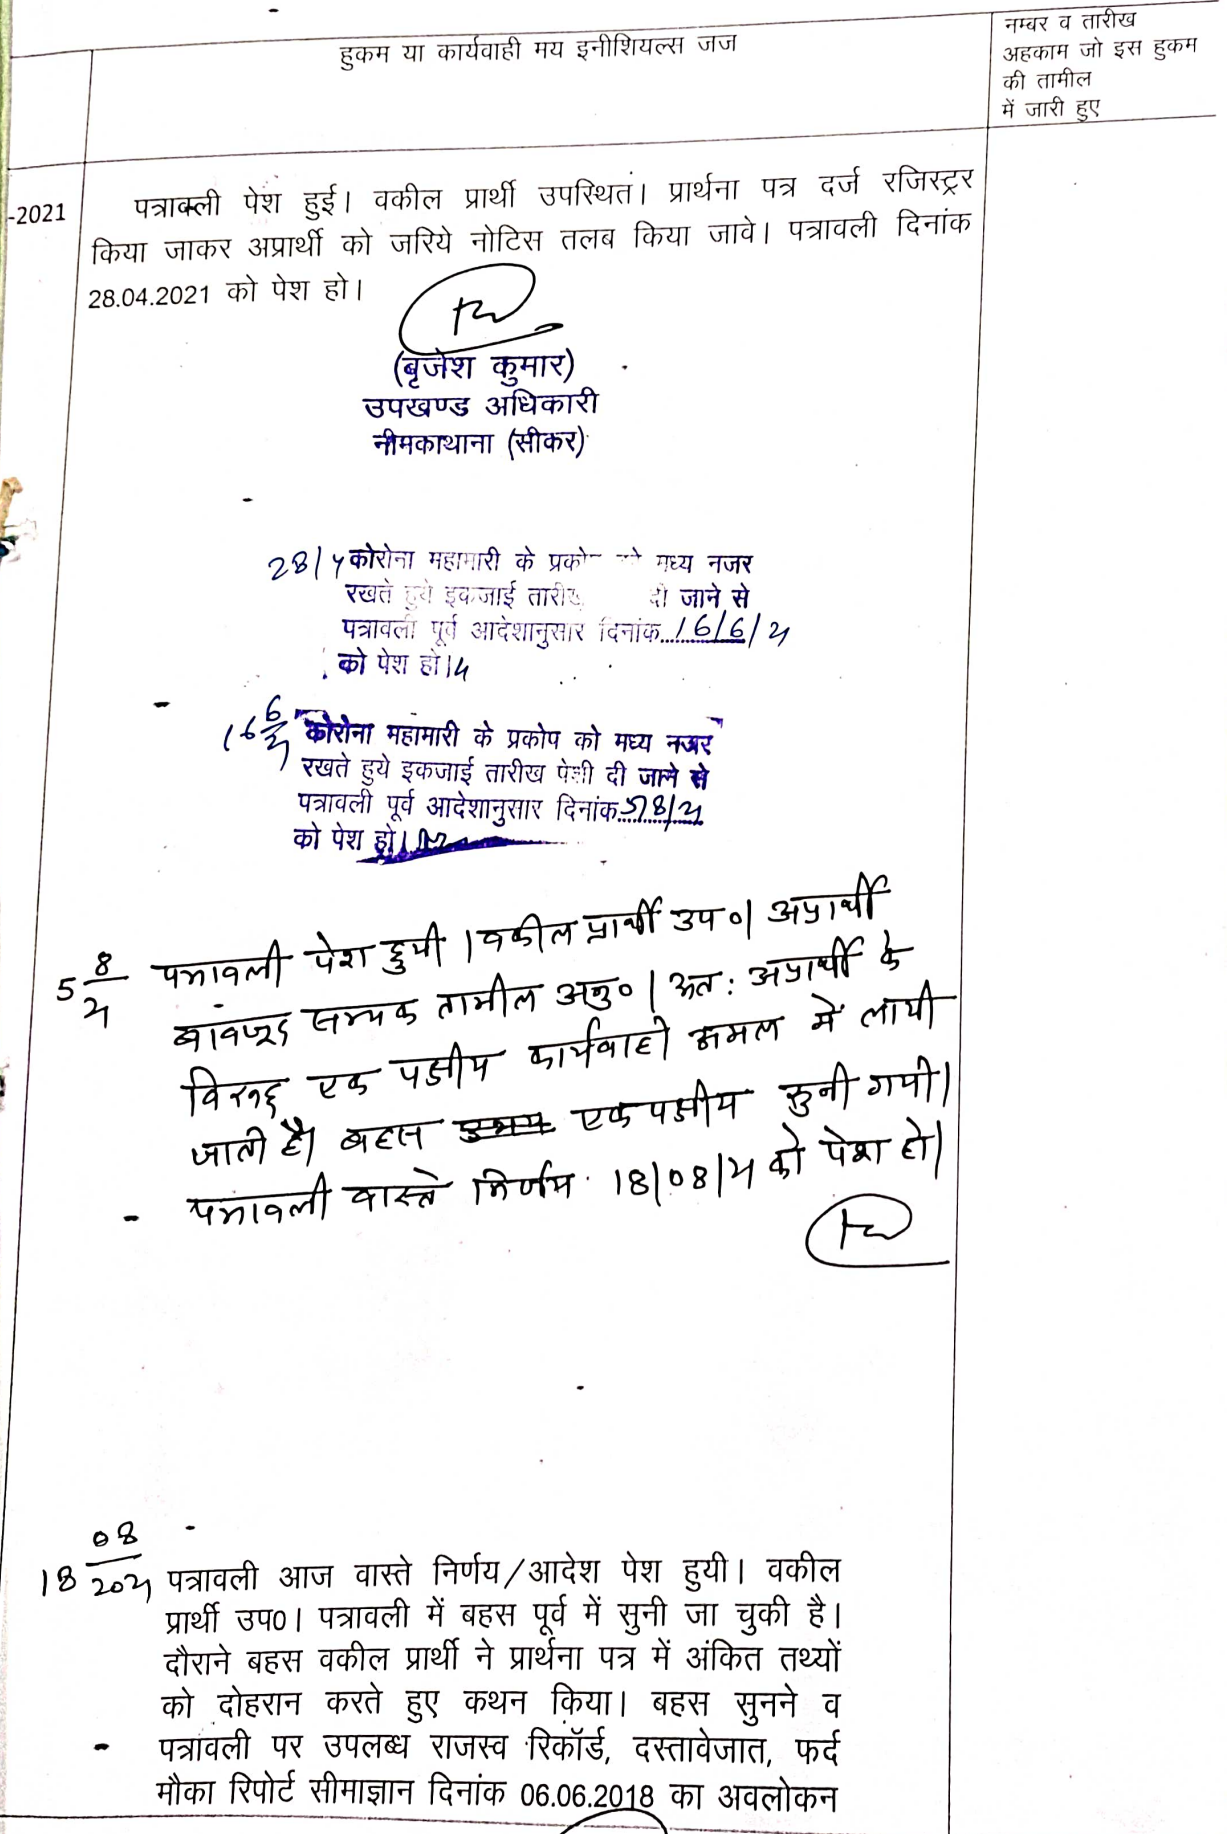 हुकम या कार्यवाही मय इनीशियल्स जज
नम्बर व तारीख
अहकाम जो इस हुकम
की तामील
में जारी हुए
-2021
पत्रावली पेश हुई। वकील प्रार्थी उपस्थित। प्रार्थना पत्र दर्ज रजिस्ट्रर
किया जाकर अप्रार्थी को जरिये नोटिस तलब किया जावे। पत्रावली दिनांक
28.04.2021 को पेश हो।
(बृजेश कुमार)
उपखण्ड अधिकारी
नीमकाथाना (सीकर)
28/4 कोरोना महामारी के मध्य नजर
रखते हुये इकजाई तारीख दी जाने से
पत्रावली पूर्व आदेशानुसार दिनांक...16/6/21
को पेश हो।
16 6/21 कोरोना महामारी के प्रकोप को मध्य नजर
रखते हुये इकजाई तारीख पेशी दी जाने से
पत्रावली पूर्व आदेशानुसार दिनांक 5/8/21
को पेश हो।
5 8/21 पत्रावली पेश हुयी। वकील प्रार्थी उप०। अप्रार्थी
बावजूद सम्यक तामील अनु०। अत: अप्रार्थी के
विरुद्ध एक पक्षीय कार्यवाही अमल में लायी
जाती है। बहस एक पक्षीय सुनी गयी।
पत्रावली वास्ते निर्णय 18/08/21 को पेश हो।
18 08/2021 पत्रावली आज वास्ते निर्णय/आदेश पेश हुयी। वकील
प्रार्थी उप0। पत्रावली में बहस पूर्व में सुनी जा चुकी है।
दौराने बहस वकील प्रार्थी ने प्रार्थना पत्र में अंकित तथ्यों
को दोहरान करते हुए कथन किया। बहस सुनने व
पत्रावली पर उपलब्ध राजस्व रिकॉर्ड, दस्तावेजात, फर्द
मौका रिपोर्ट सीमाज्ञान दिनांक 06.06.2018 का अवलोकन